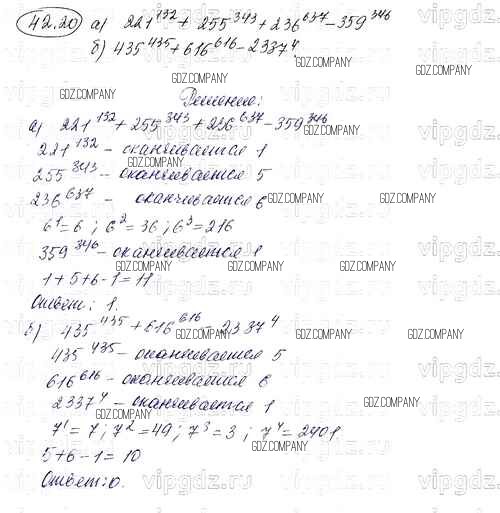 42.20 а) 221^132 + 255^343 + 236^637 - 359^346
б) 435^435 + 616^616 - 2337^4
GDZ.COMPANY
GDZ.COMPANY
GDZ.COMPANY
Решение:
а) 221^132 + 255^343 + 236^637 - 359^346
GDZ.COMPANY
221^132 - оканчивается 1
GDZ.COMPANY
255^343 - оканчивается 5
236^637 - оканчивается 6
GDZ.COMPANY GDZ.COMPANY
6^1=6; 6^2=36; 6^3=216
359^346 - оканчивается 1
GDZ.COMPANY GDZ.COMPANY GDZ.COMPANY
1+5+6-1=11
Ответ: 1.
б) 435^435 + 616^616 - 2337^4
GDZ.COMPANY GDZ.COMPANY GDZ.COMPANY
435^435 - оканчивается 5
616^616 - оканчивается 6
2337^4 - оканчивается 1
GDZ.COMPANY
7^1=7; 7^2=49; 7^3=3; 7^4=2401.
GDZ.COMPANY
5+6-1=10
Ответ: 0.
vipgdz.ru